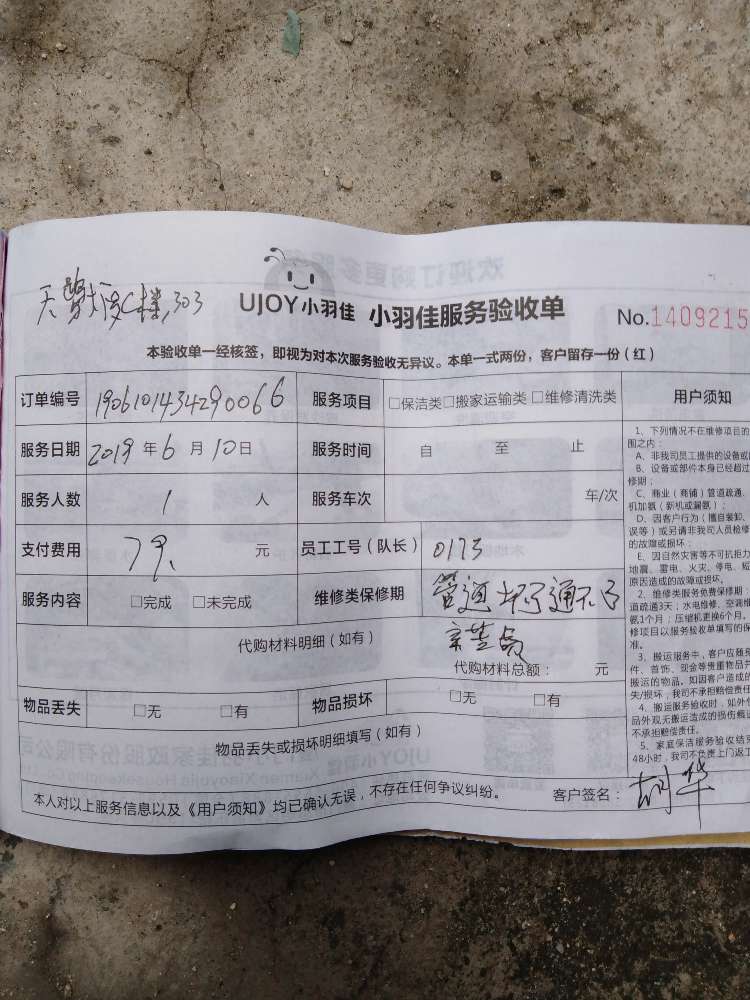 303
UJOY小羽佳 小羽佳服务验收单
No.1409215
本验收单一经核签，即视为对本次服务验收无异议。本单一式两份，客户留存一份（红）
订单编号 1906101434290066 服务项目 □保洁类□搬家运输类□维修清洗类
服务日期 2019年6月10日 服务时间 自 至 止
服务人数 1 人 服务车次 车/次
支付费用 79. 元 员工工号（队长） 0173
服务内容 □完成 □未完成 维修类保修期 管道坏了通不了
代购材料明细（如有）
代购材料总额： 元
物品丢失 □无 □有 物品损坏 □无 □有
物品丢失或损坏明细填写（如有）
本人对以上服务信息以及《用户须知》均已确认无误，不存在任何争议纠纷。 客户签名： 胡华
用户须知
1、下列情况不在维修项目的
围之内：
A、非我司员工提供的设备或
B、设备或部件本身已经超过
修期；
C、商业（商铺）管道疏通、
机加氨（新机或漏氨）；
D、因客户行为（擅自装卸、
误等）或另请非我司人员检修
的故障或损坏；
E、因自然灾害等不可抗拒力
地震、雷电、火灾、停电、短
原因造成的故障或损坏。
2、维修类服务免费保修期：
道疏通3天；水电维修、空调维
氨1个月；压缩机更换6个月。
修项目以服务验收单填写的保
准。
3、搬运服务中，客户应随身
件、首饰、现金等贵重物品并
搬运的物品。如因客户造成的
失/损坏，我司不承担赔偿责任
4、搬运服务验收时，如外包
品外观无搬运造成的损伤痕迹
不承担赔偿责任。
5、家庭保洁服务验收结束
48小时，我司不负责上门返工